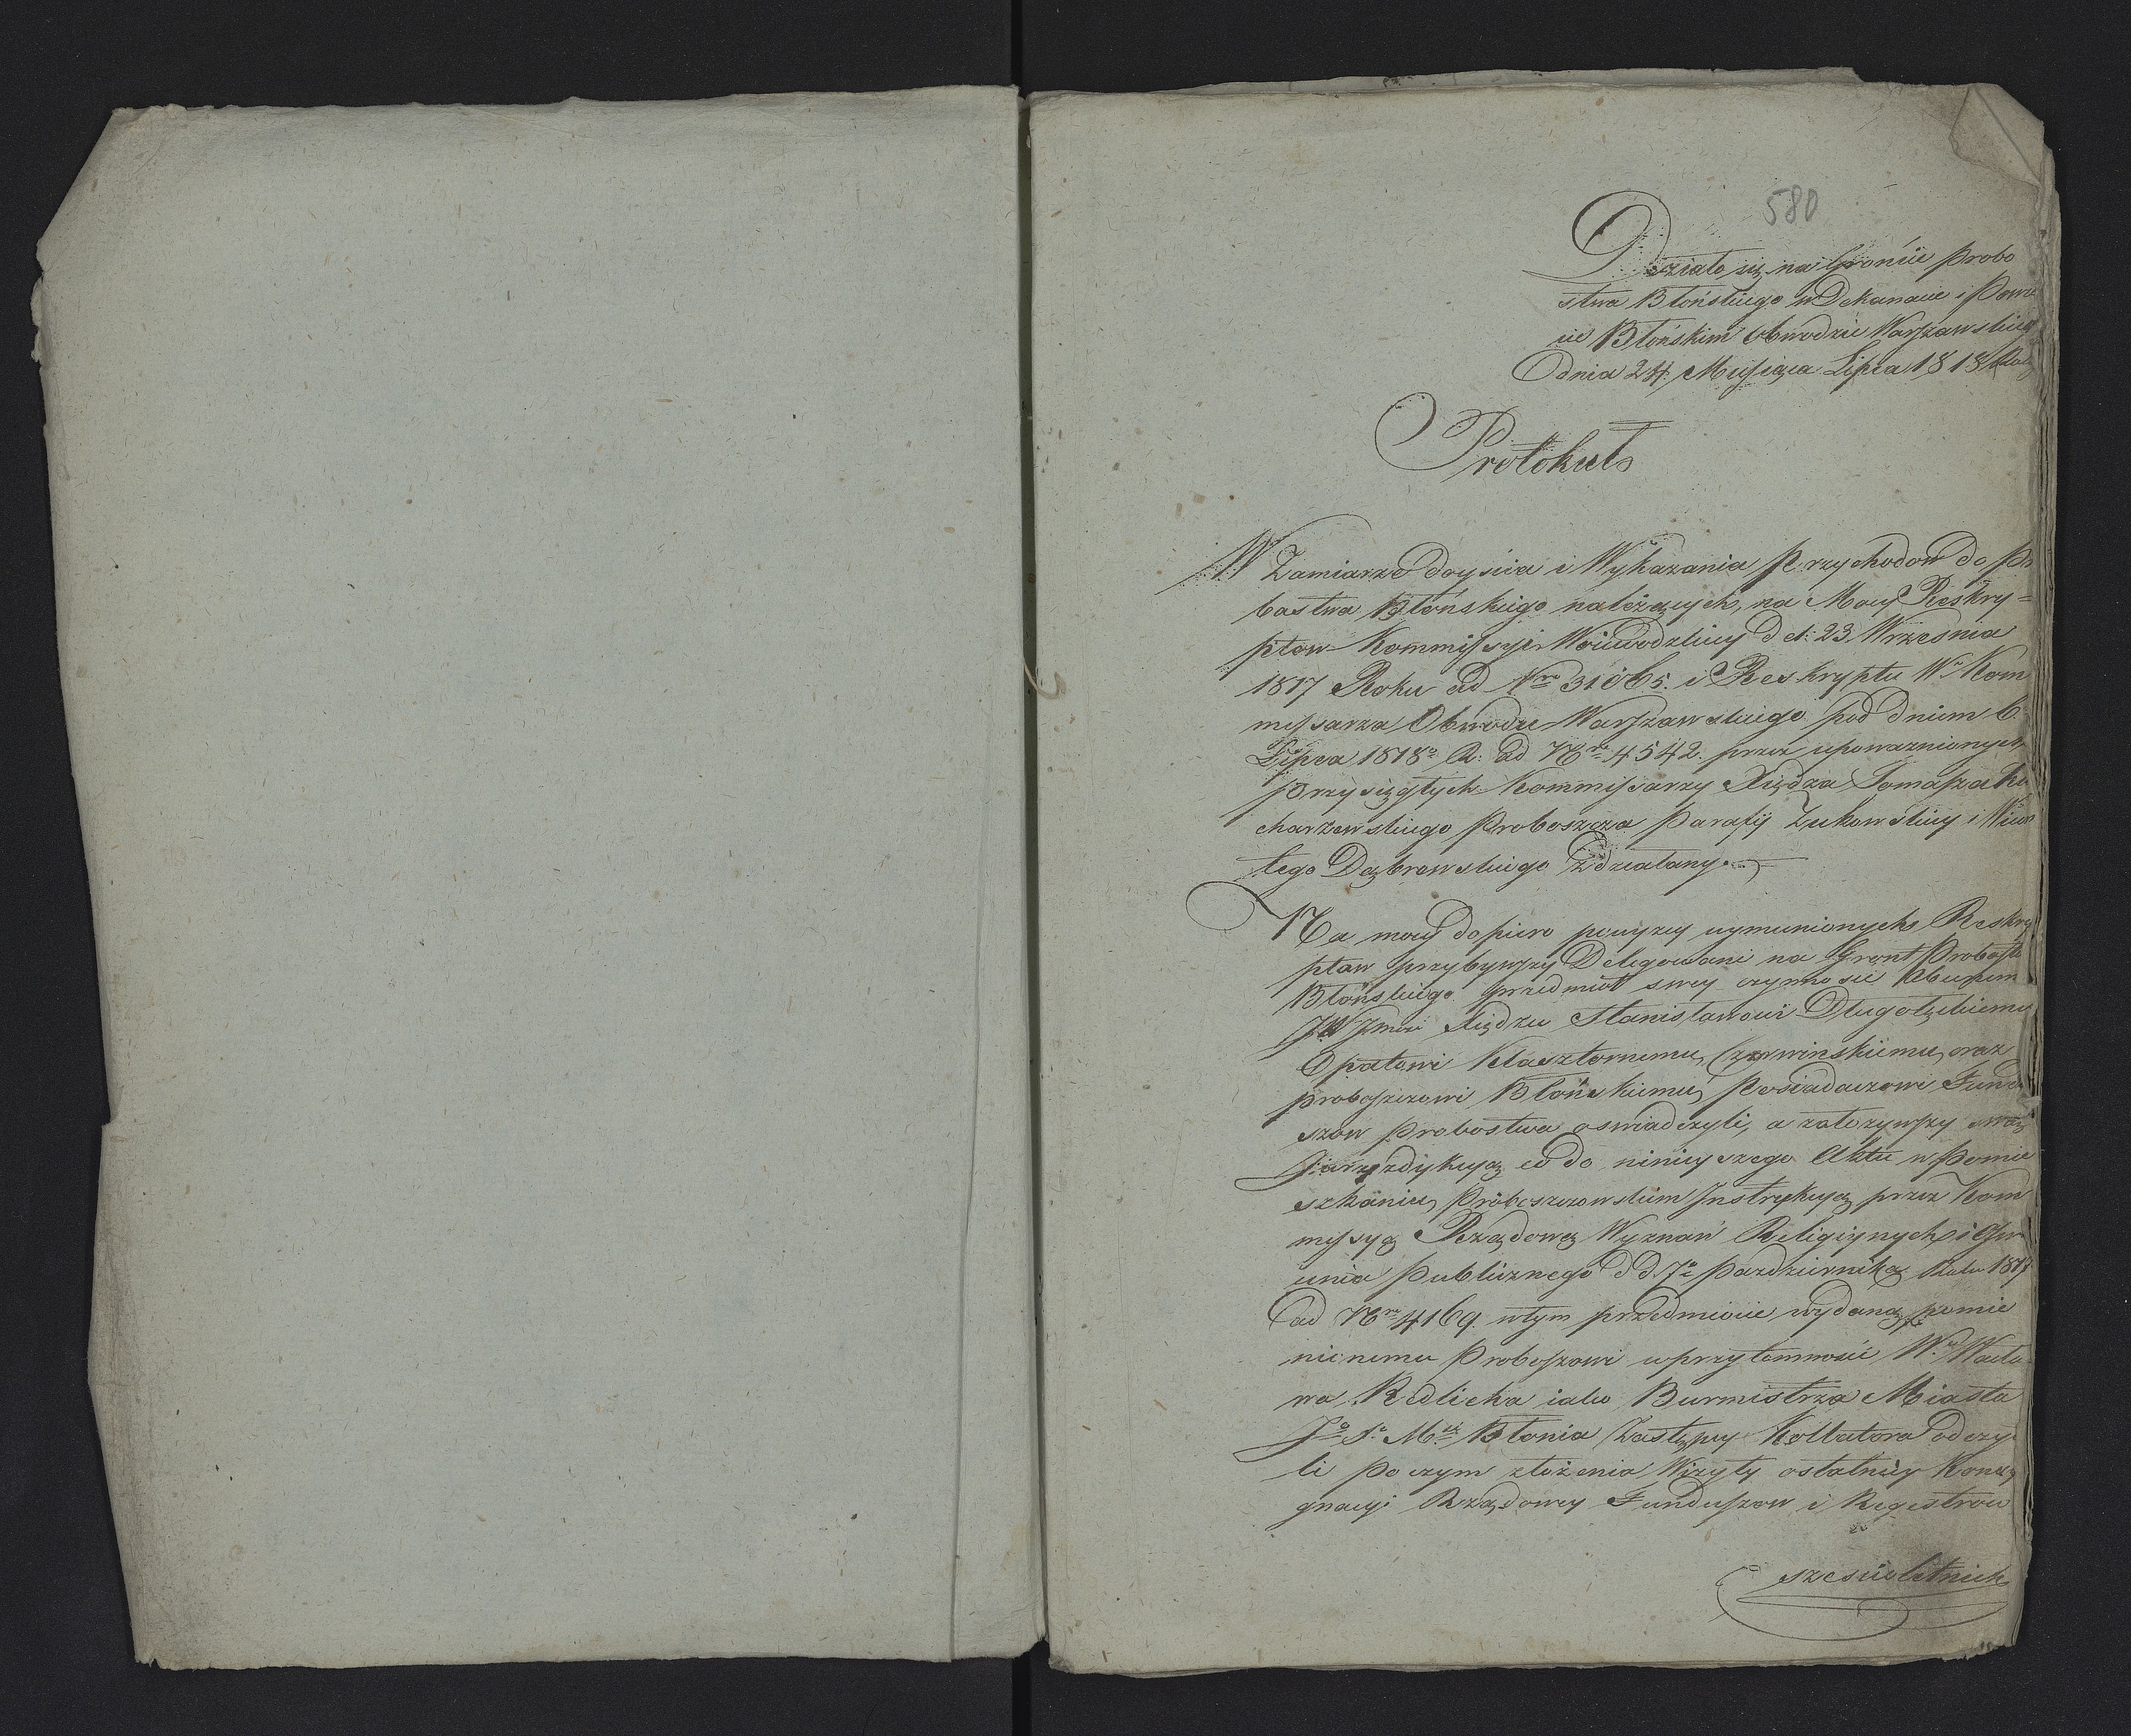 580
Działo się na Gróncie Probo
stwa Błońskiego w Dekanacie i Powie
cie Błońskim Obwodzie Warszawskieg
dnia 24. Miesiąca Lipca 1818 Roku
Protokuł
W Zamiarze doyścia i Wykazania Przychodow do Pro
bostwa Błońskiego należących, na Mocy Reskry=
ptow Kommissyi Woiewodzkiey d d: 23 Września
1817 Roku ad Nro 31065. i Reskryptu Wo Kom
missarza Obwodu Warszawskiego pod dniem 6
Lipca 1818o R: ad Nro 4542. przez upoważnionych
Przysięgłych Kommissarzy Xiędza Tomasza Ku
charzewskiego Proboszcza Parafij Żukowskiey i
tego Dąbrowskiego zdziałany.
Na mocy dopiero powyzey wymienionych Reskry
ptow przybywszy Delegowani na Gront Probostw
Błońskiego przedmiot swey czynności
JW Jmci Xiędzu Stanisławowi Długołęckiemu
Opatowi Klasztornemu Czerwinskiemu, oraz
Proboszczowi Błońskiemu Posiadaczowi Fundu
szow Probostwa oświadczyli, a załozywszy swoią
Jurryzdykcyą co do ninieyszego Aktu w Pomie
szkaniu Proboszczowskim Instrukcyą przez Kom
missyą Rządową Wyznań Religiynych i Ośw
cenia Publicznego d d. 7o Pazdziernika Roku 1817
ad Nro 4169. w tym przedmiocie wydaną pomie
nionemu Proboszowi w przytomności Wo Wacła
wa Redlicha iako Burmistrza Miasta
Błonia Zastępcy Kollatora odczy
li po czym złożenia Wizyty ostatniey Konsy
gnacyi Rządowey Funduszow i Regestrow
sześcioletnich